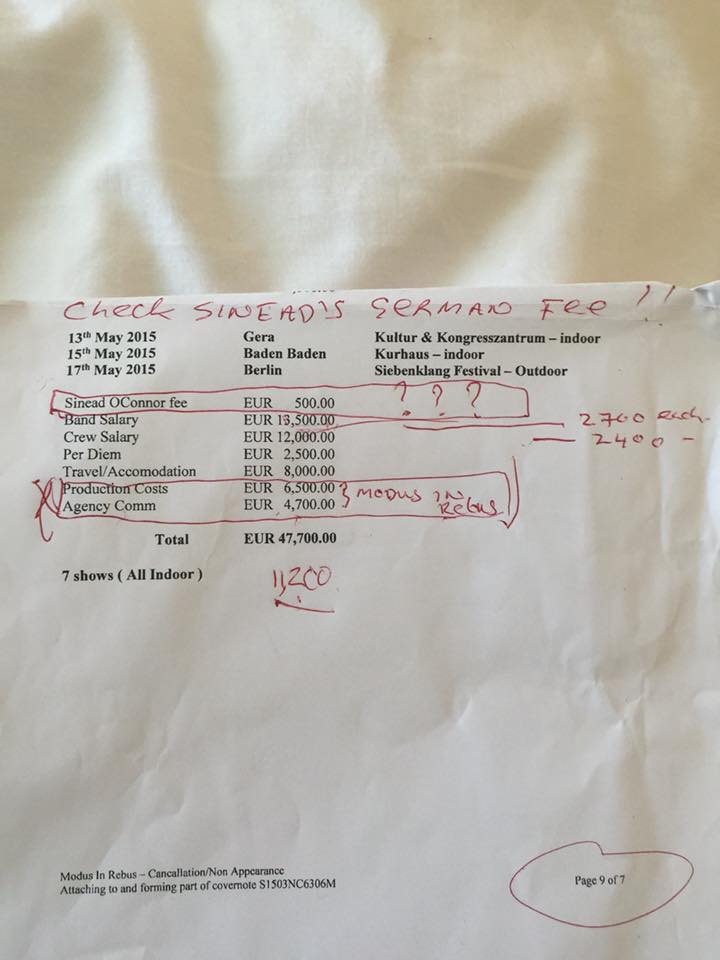 Check SINEAD'S GERMAN FEE !!
13th May 2015 Gera Kultur & Kongresszantrum – indoor
15th May 2015 Baden Baden Kurhaus – indoor
17th May 2015 Berlin Siebenklang Festival – Outdoor
Sinead OConnor fee EUR 500.00 ? ? ?
Band Salary EUR 13,500.00 2700 each
Crew Salary EUR 12,000.00 2400 -
Per Diem EUR 2,500.00
Travel/Accomodation EUR 8,000.00
Production Costs EUR 6,500.00 } MODUS IN
Agency Comm EUR 4,700.00 REBUS
Total EUR 47,700.00
7 shows ( All Indoor ) 11,200
Modus In Rebus – Cancallation/Non Appearance
Attaching to and forming part of covernote S1503NC6306M
Page 9 of 7